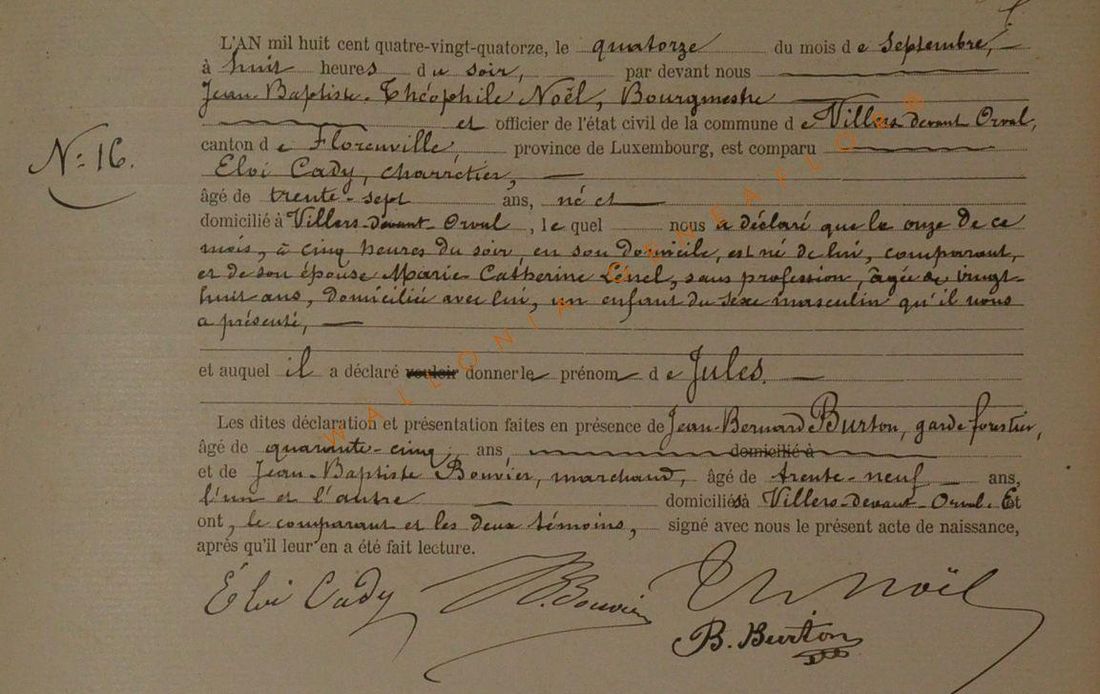 L'AN mil huit cent quatre-vingt-quatorze, le quatorze du mois de septembre,
à huit heures du soir, par devant nous
Jean-Baptiste-Théophile Noël, Bourgmestre
et officier de l'état civil de la commune de Villers devant Orval,
N: 16.
canton de Florenville, province de Luxembourg, est comparu
Eloi Cady, charretier,
âgé de trente-sept ans, né et
domicilié à Villers-devant-Orval, lequel nous a déclaré que le onze de ce
mois, à cinq heures du soir, en son domicile, est né de lui, comparant,
et de son épouse Marie-Catherine Lenel, sans profession, âgée de vingt-
huit ans, domiciliée avec lui, un enfant du sexe masculin qu'il nous
a présenté,
et auquel il a déclaré vouloir donner le prénom de Jules.
Les dites déclaration et présentation faites en présence de Jean-Bernard Burton, garde forestier,
âgé de quarante-cinq ans, domicilié à
et de Jean-Baptiste Bouvier, marchand, âgé de trente-neuf ans,
l'un et l'autre domiciliés à Villers-devant-Orval. Et
ont, le comparant et les deux témoins, signé avec nous le présent acte de naissance,
après qu'il leur en a été fait lecture.
Éloi Cady JB. Bouvier Th Noël
B. Burton